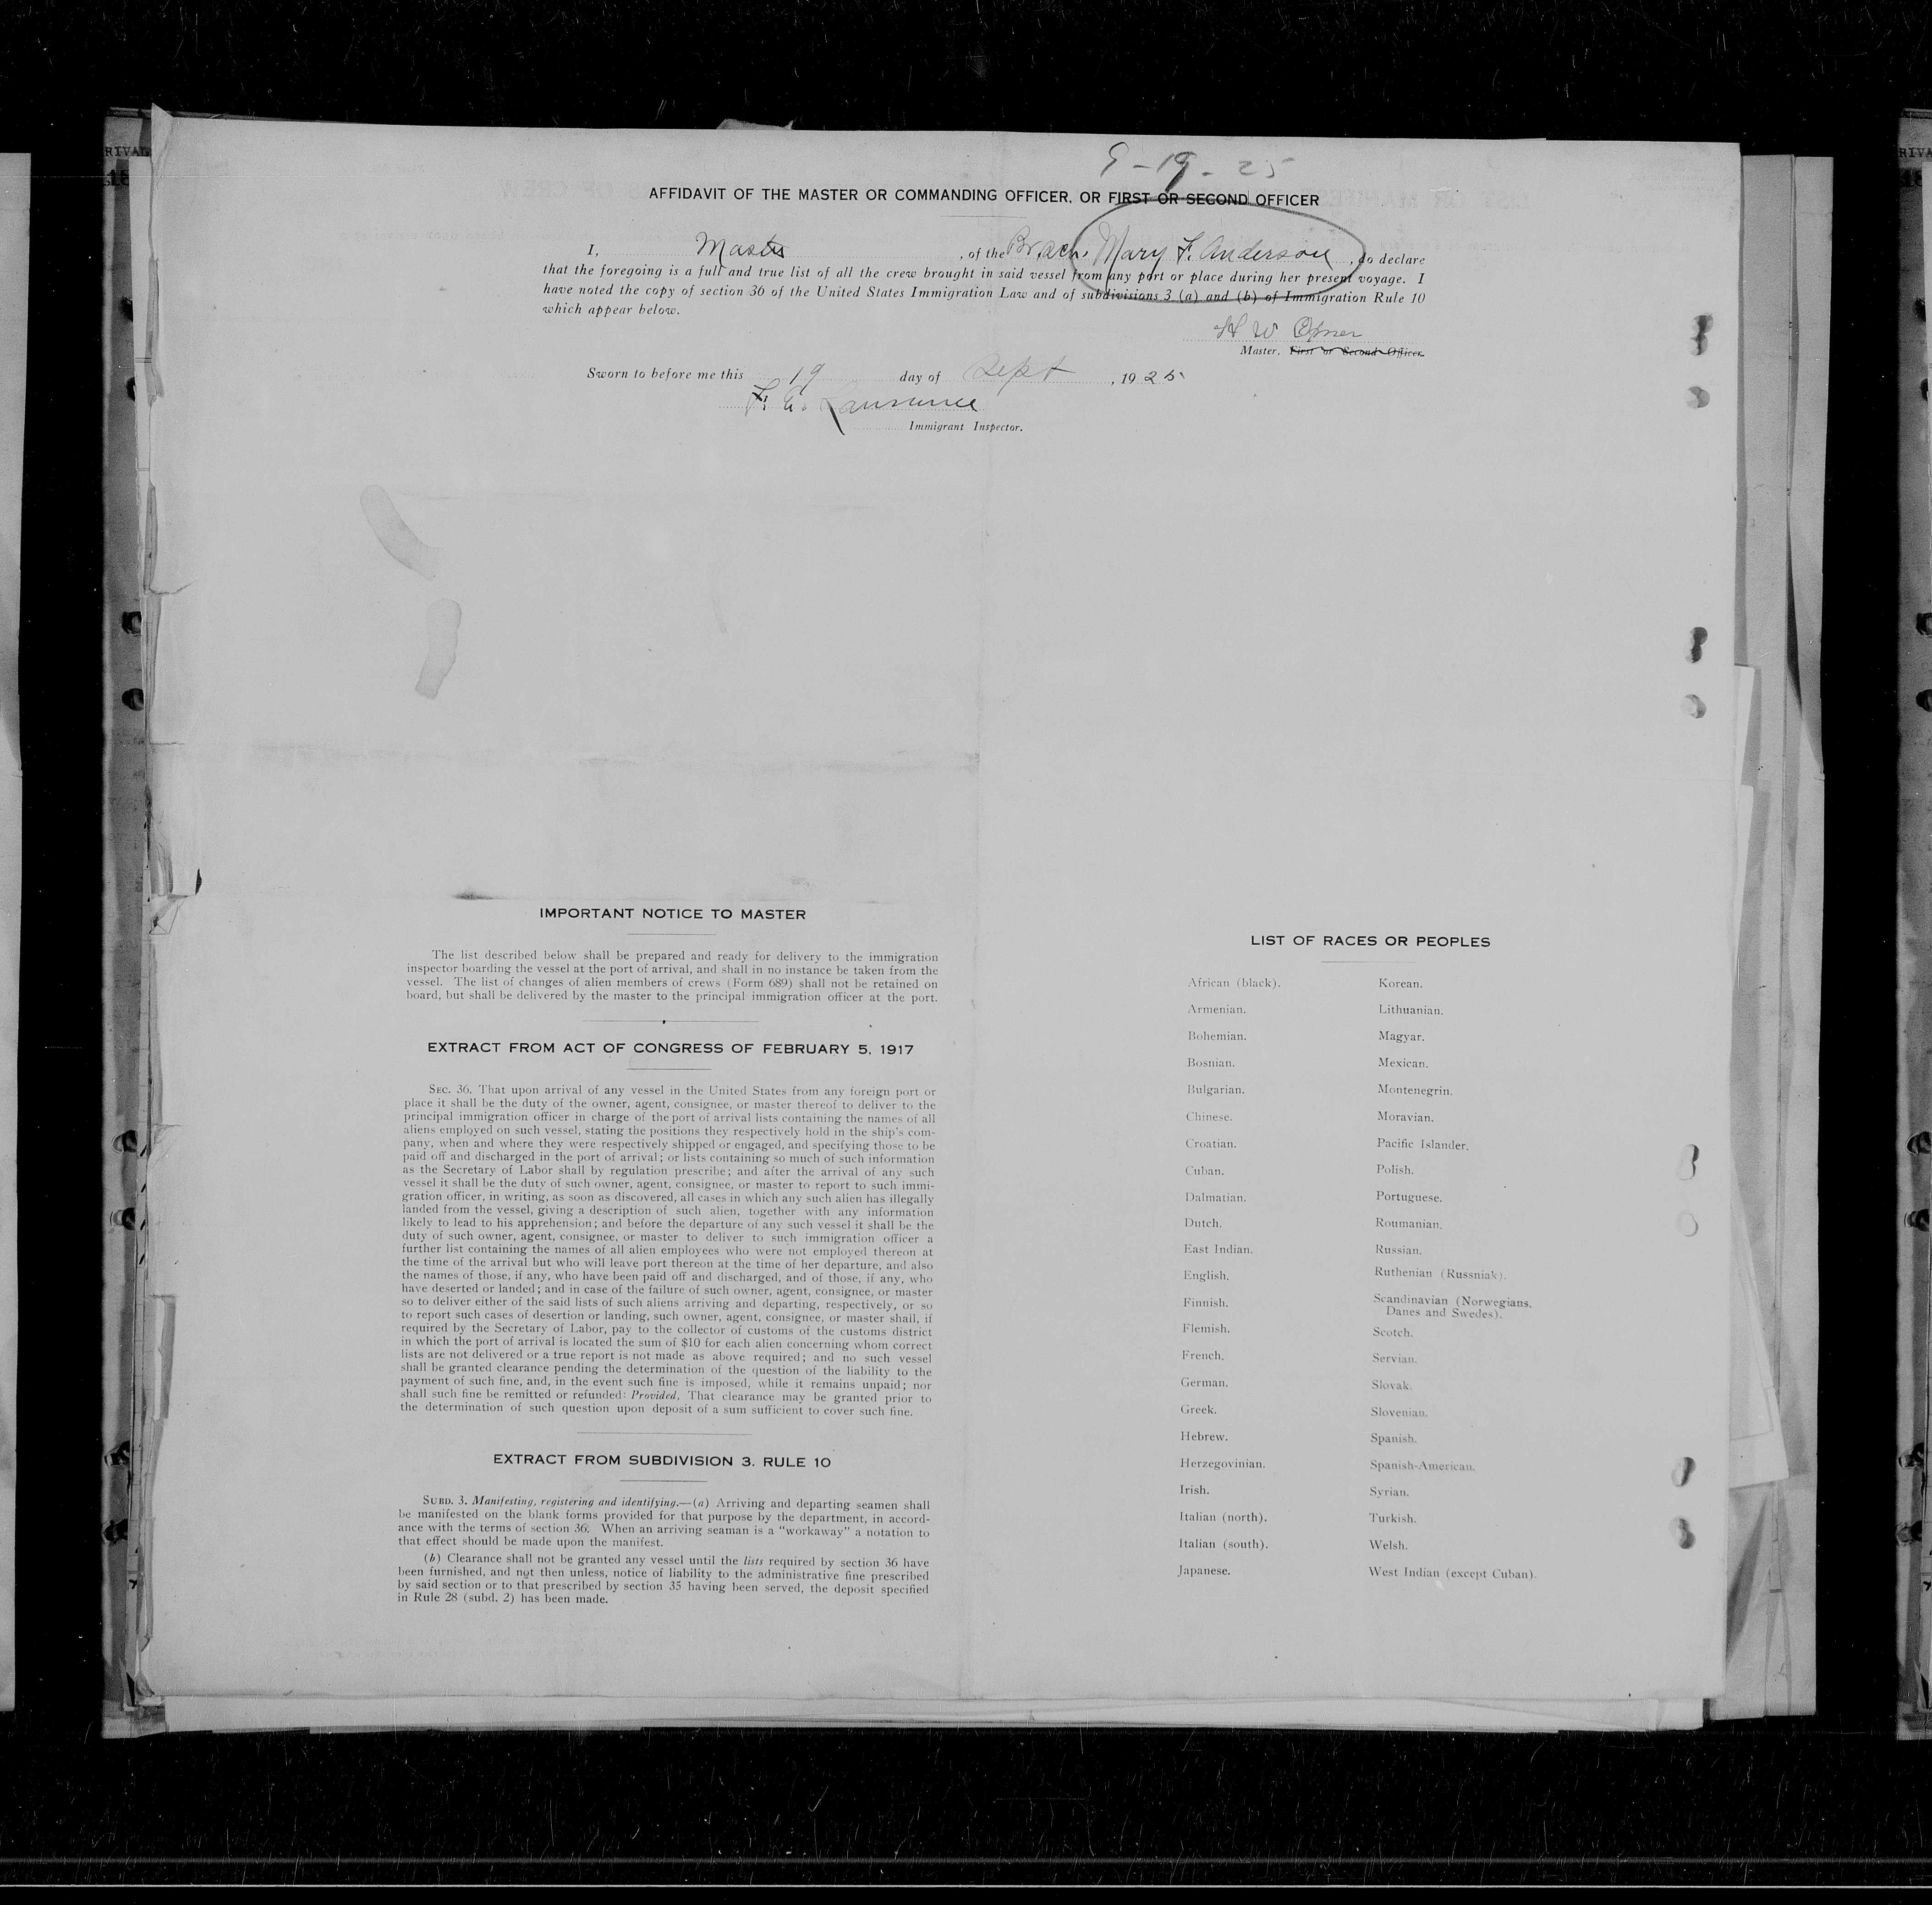 9-19-25
AFFIDAVIT OF THE MASTER OR COMMANDING OFFICER, OR FIRST OR SECOND OFFICER
I, Master, of the Br. sch. Mary F. Anderson, do declare
that the foregoing is a full and true list of all the crew brought in said vessel from any port or place during her present voyage. I
have noted the copy of section 36 of the United States Immigration Law and of subdivisions 3 (a) and (b) of Immigration Rule 10
which appear below.
H W
Master, First or Second Officer.
Sworn to before me this 19 day of Sept, 1925
F.
Immigrant Inspector.
IMPORTANT NOTICE TO MASTER
The list described below shall be prepared and ready for delivery to the immigration
inspector boarding the vessel at the port of arrival, and shall in no instance be taken from the
vessel. The list of changes of alien members of crews (Form 689) shall not be retained on
board, but shall be delivered by the master to the principal immigration officer at the port.
EXTRACT FROM ACT OF CONGRESS OF FEBRUARY 5, 1917
SEC. 36. That upon arrival of any vessel in the United States from any foreign port or
place it shall be the duty of the owner, agent, consignee, or master thereof to deliver to the
principal immigration officer in charge of the port of arrival lists containing the names of all
aliens employed on such vessel, stating the positions they respectively hold in the ship's com-
pany, when and where they were respectively shipped or engaged, and specifying those to be
paid off and discharged in the port of arrival; or lists containing so much of such information
as the Secretary of Labor shall by regulation prescribe; and after the arrival of any such
vessel it shall be the duty of such owner, agent, consignee, or master to report to such immi-
gration officer, in writing, as soon as discovered, all cases in which any such alien has illegally
landed from the vessel, giving a description of such alien, together with any information
likely to lead to his apprehension; and before the departure of any such vessel it shall be the
duty of such owner, agent, consignee, or master to deliver to such immigration officer a
further list containing the names of all alien employees who were not employed thereon at
the time of the arrival but who will leave port thereon at the time of her departure, and also
the names of those, if any, who have been paid off and discharged, and of those, if any, who
have deserted or landed; and in case of the failure of such owner, agent, consignee, or master
so to deliver either of the said lists of such aliens arriving and departing, respectively, or so
to report such cases of desertion or landing, such owner, agent, consignee, or master shall, if
required by the Secretary of Labor, pay to the collector of customs of the customs district
in which the port of arrival is located the sum of $10 for each alien concerning whom correct
lists are not delivered or a true report is not made as above required; and no such vessel
shall be granted clearance pending the determination of the question of the liability to the
payment of such fine, and, in the event such fine is imposed, while it remains unpaid; nor
shall such fine be remitted or refunded: Provided, That clearance may be granted prior to
the determination of such question upon deposit of a sum sufficient to cover such fine.
EXTRACT FROM SUBDIVISION 3, RULE 10
SUBD. 3. Manifesting, registering and identifying.—(a) Arriving and departing seamen shall
be manifested on the blank forms provided for that purpose by the department, in accord-
ance with the terms of section 36. When an arriving seaman is a "workaway" a notation to
that effect should be made upon the manifest.
(b) Clearance shall not be granted any vessel until the lists required by section 36 have
been furnished, and not then unless, notice of liability to the administrative fine prescribed
by said section or to that prescribed by section 35 having been served, the deposit specified
in Rule 28 (subd. 2) has been made.
LIST OF RACES OR PEOPLES
African (black).
Armenian.
Bohemian.
Bosnian.
Bulgarian.
Chinese.
Croatian.
Cuban.
Dalmatian.
Dutch.
East Indian.
English.
Finnish.
Flemish.
French.
German.
Greek.
Hebrew.
Herzegovinian.
Irish.
Italian (north).
Italian (south).
Japanese.
Korean.
Lithuanian.
Magyar.
Mexican.
Montenegrin.
Moravian.
Pacific Islander.
Polish.
Portuguese.
Roumanian.
Russian.
Ruthenian (Russniak).
Scandinavian (Norwegians,
Danes and Swedes).
Scotch.
Servian.
Slovak.
Slovenian.
Spanish.
Spanish-American.
Syrian.
Turkish.
Welsh.
West Indian (except Cuban).